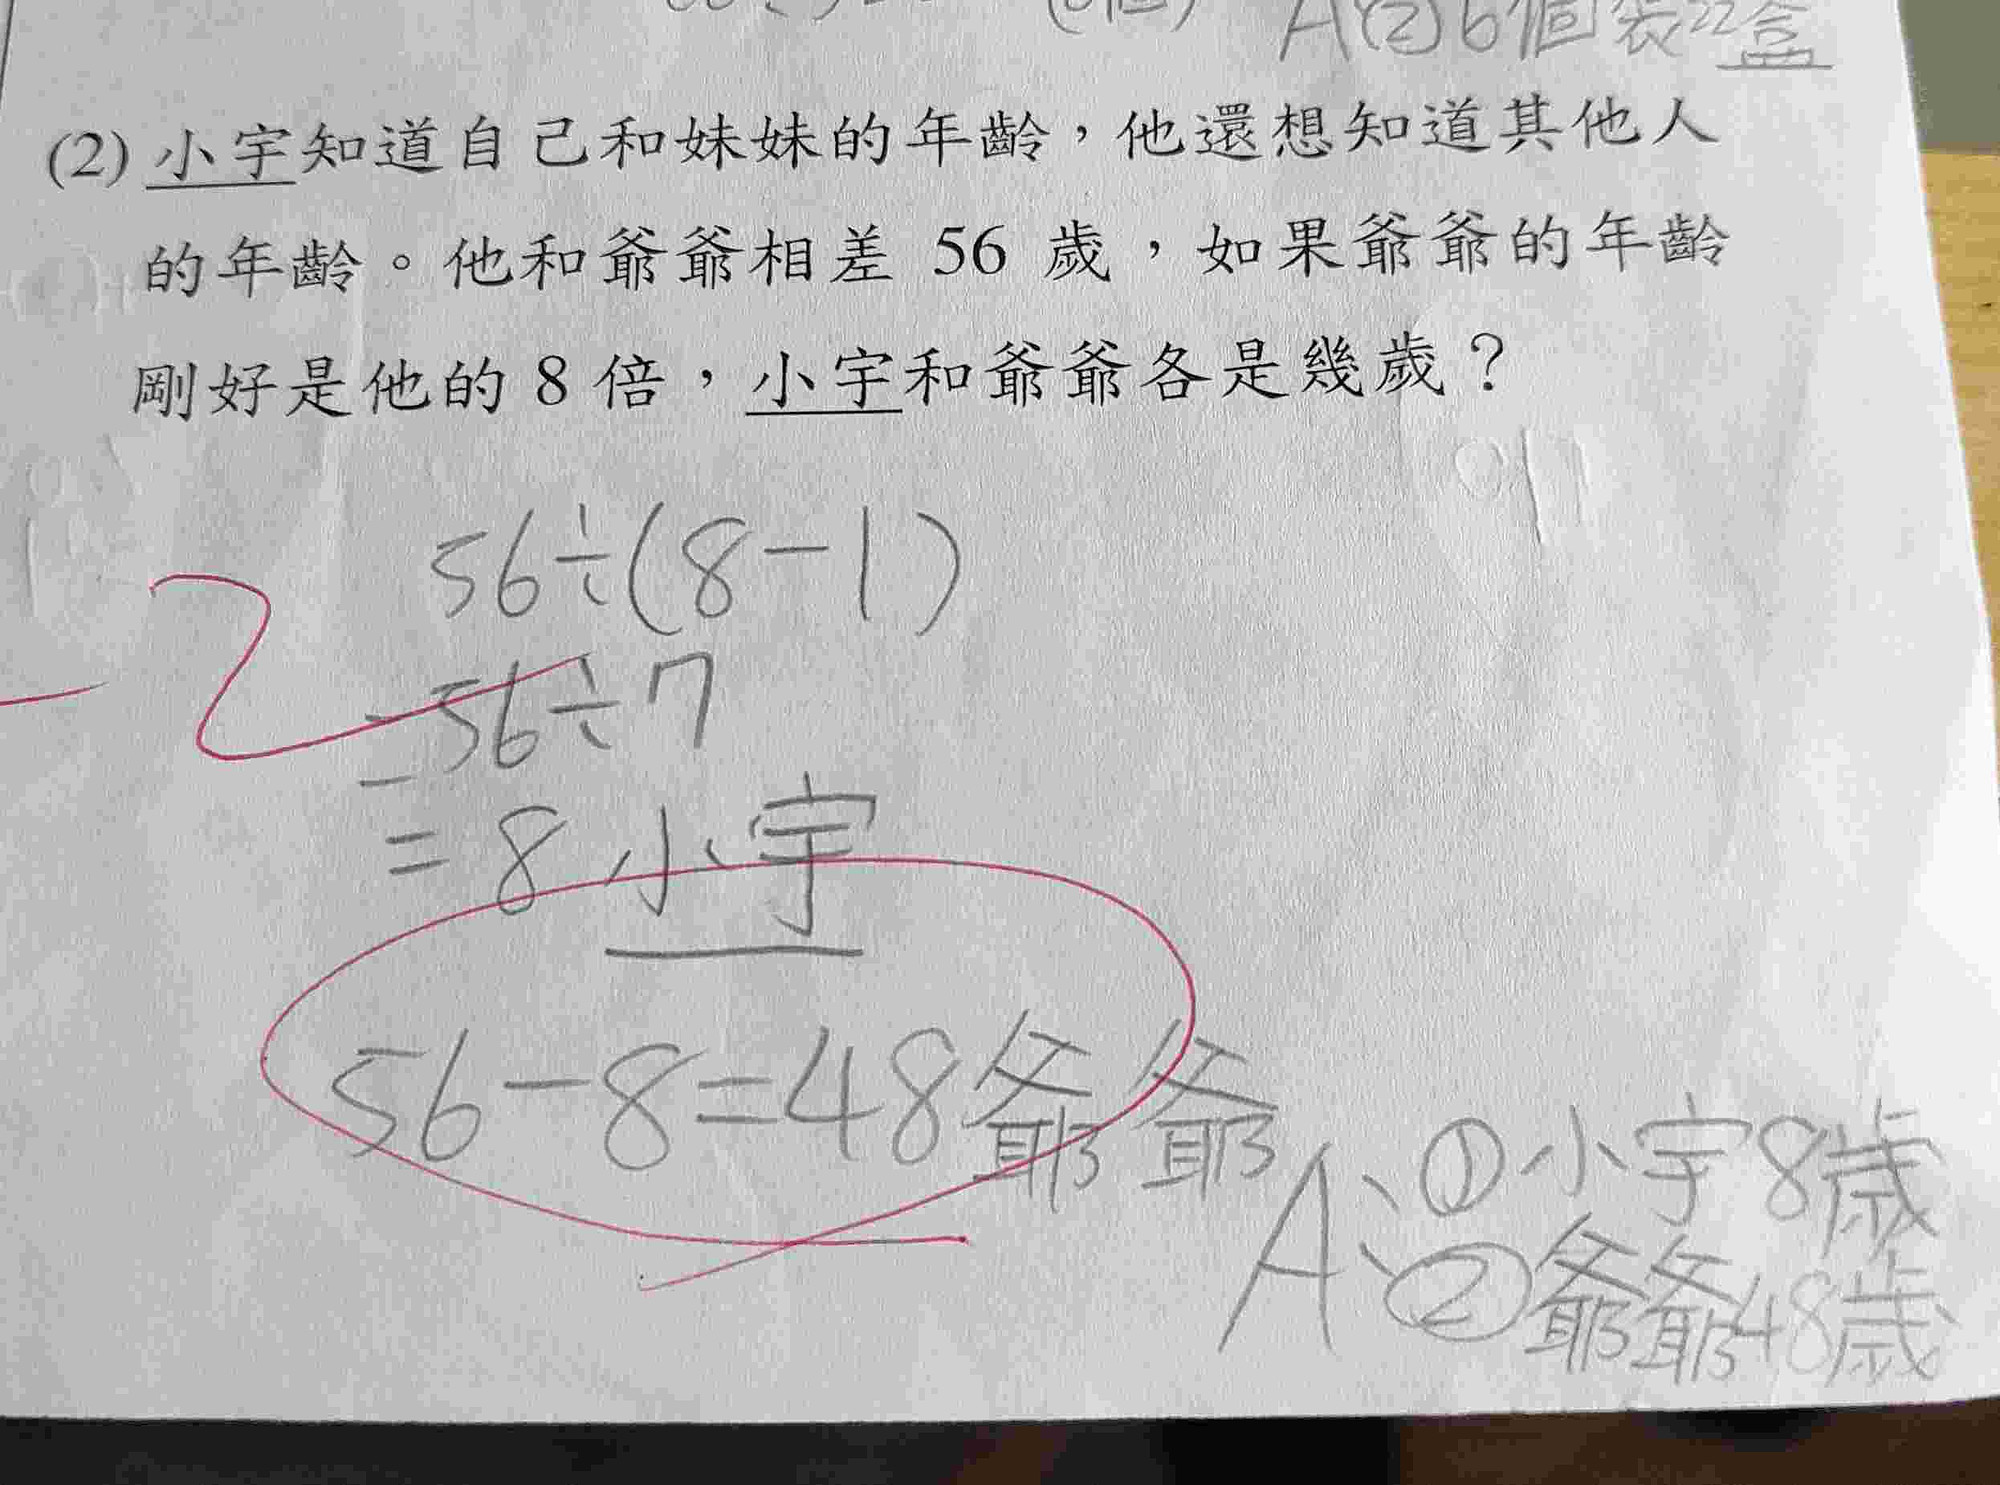 A(2)6個裝22盒
(2) 小宇知道自己和妹妹的年齡，他還想知道其他人
的年齡。他和爺爺相差 56 歲，如果爺爺的年齡
剛好是他的 8 倍，小宇和爺爺各是幾歲？
56÷(8-1)
=56÷7
-2
=8 小宇
56-8=48爺爺
A、①小宇8歲
、②爺爺48歲